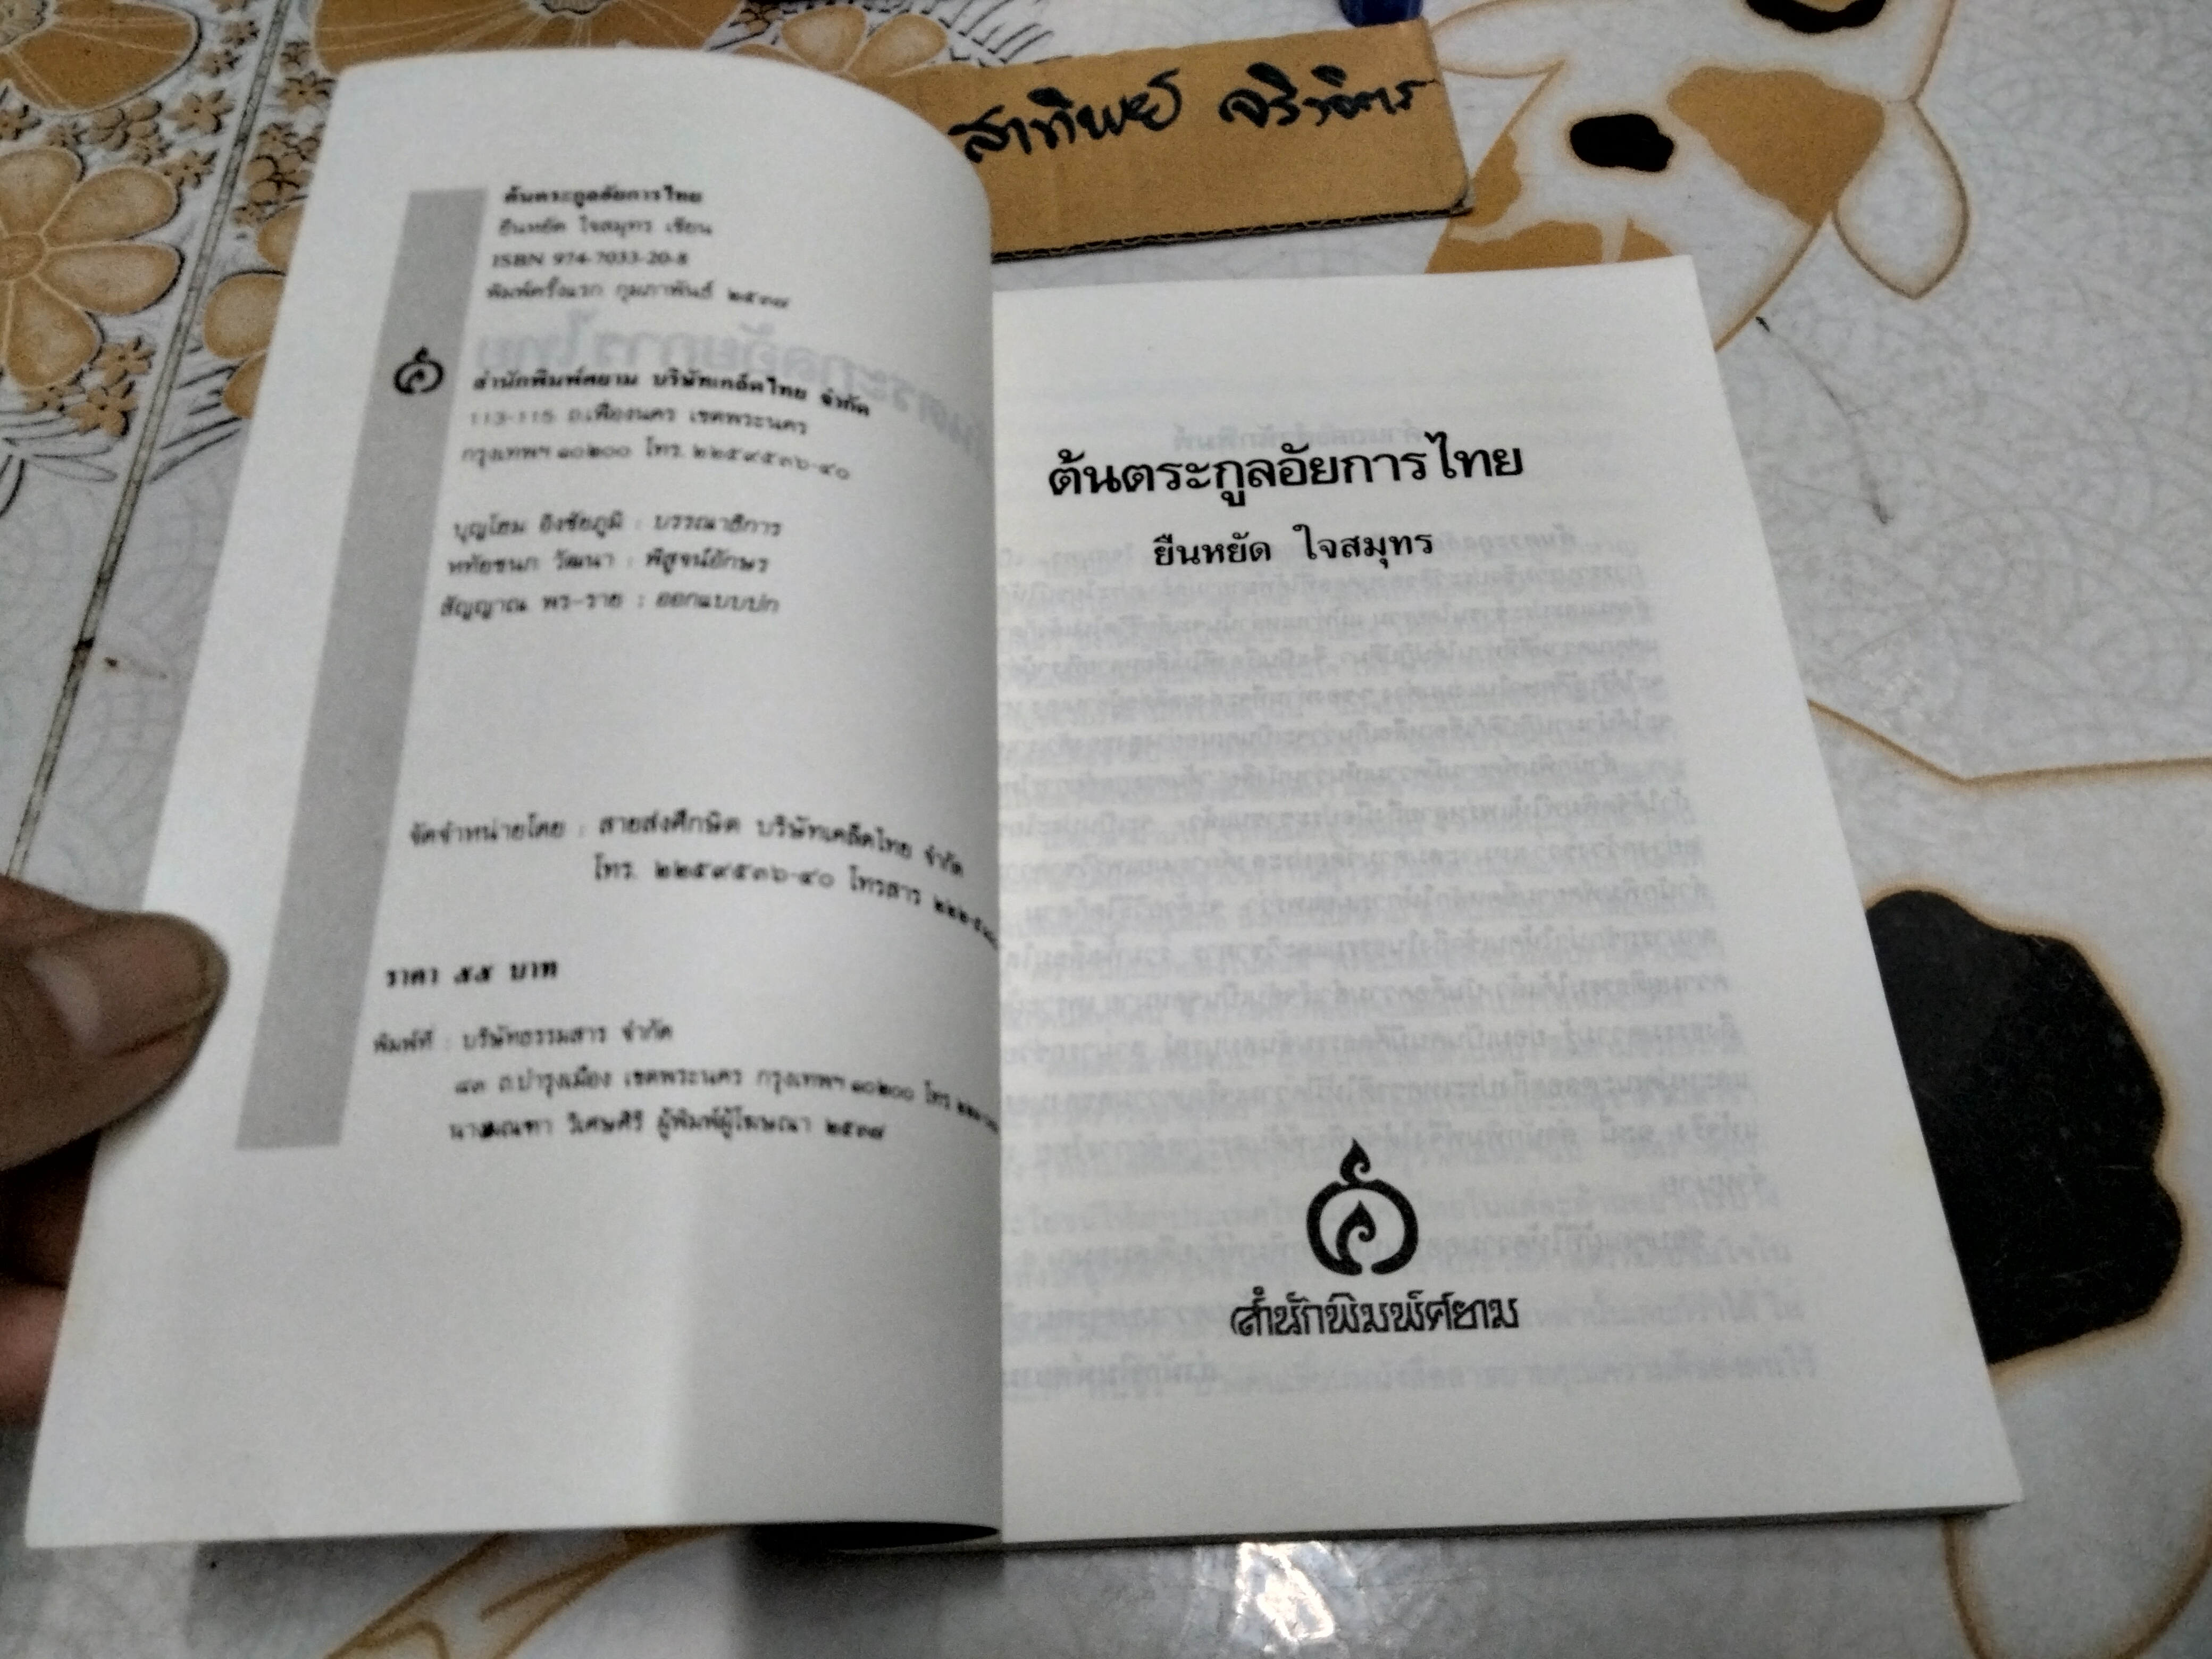 สาทิพย์
ต้นตระกูลอัยการไทย
ยืนหยัด ใจสมุทร เขียน
ISBN 974-7033-20-8
พิมพ์ครั้งแรก กุมภาพันธ์ ๒๕๓๗
สำนักพิมพ์ศยาม บริษัทเคล็ดไทย จำกัด
113-115 ถ.เฟื่องนคร เขตพระนคร
กรุงเทพฯ ๑๐๒๐๐ โทร. ๒๒๕๙๕๓๖-๔๐
บุญโฮม อิงชัยภูมิ : บรรณาธิการ
หทัยชนก วัฒนา : พิสูจน์อักษร
สัญญาณ พร-ราย : ออกแบบปก
จัดจำหน่ายโดย : สายส่งศึกษิต บริษัทเคล็ดไทย จำกัด
โทร. ๒๒๕๙๕๓๖-๔๐ โทรสาร
ราคา ๕๕ บาท
พิมพ์ที่ : บริษัทธรรมสาร จำกัด
ถ.บำรุงเมือง เขตพระนคร กรุงเทพฯ ๑๐๒๐๐ โทร
วิเศษศิริ ผู้พิมพ์ผู้โฆษณา ๒๕๓๗
ต้นตระกูลอัยการไทย
ยืนหยัด ใจสมุทร
สำนักพิมพ์ศยาม